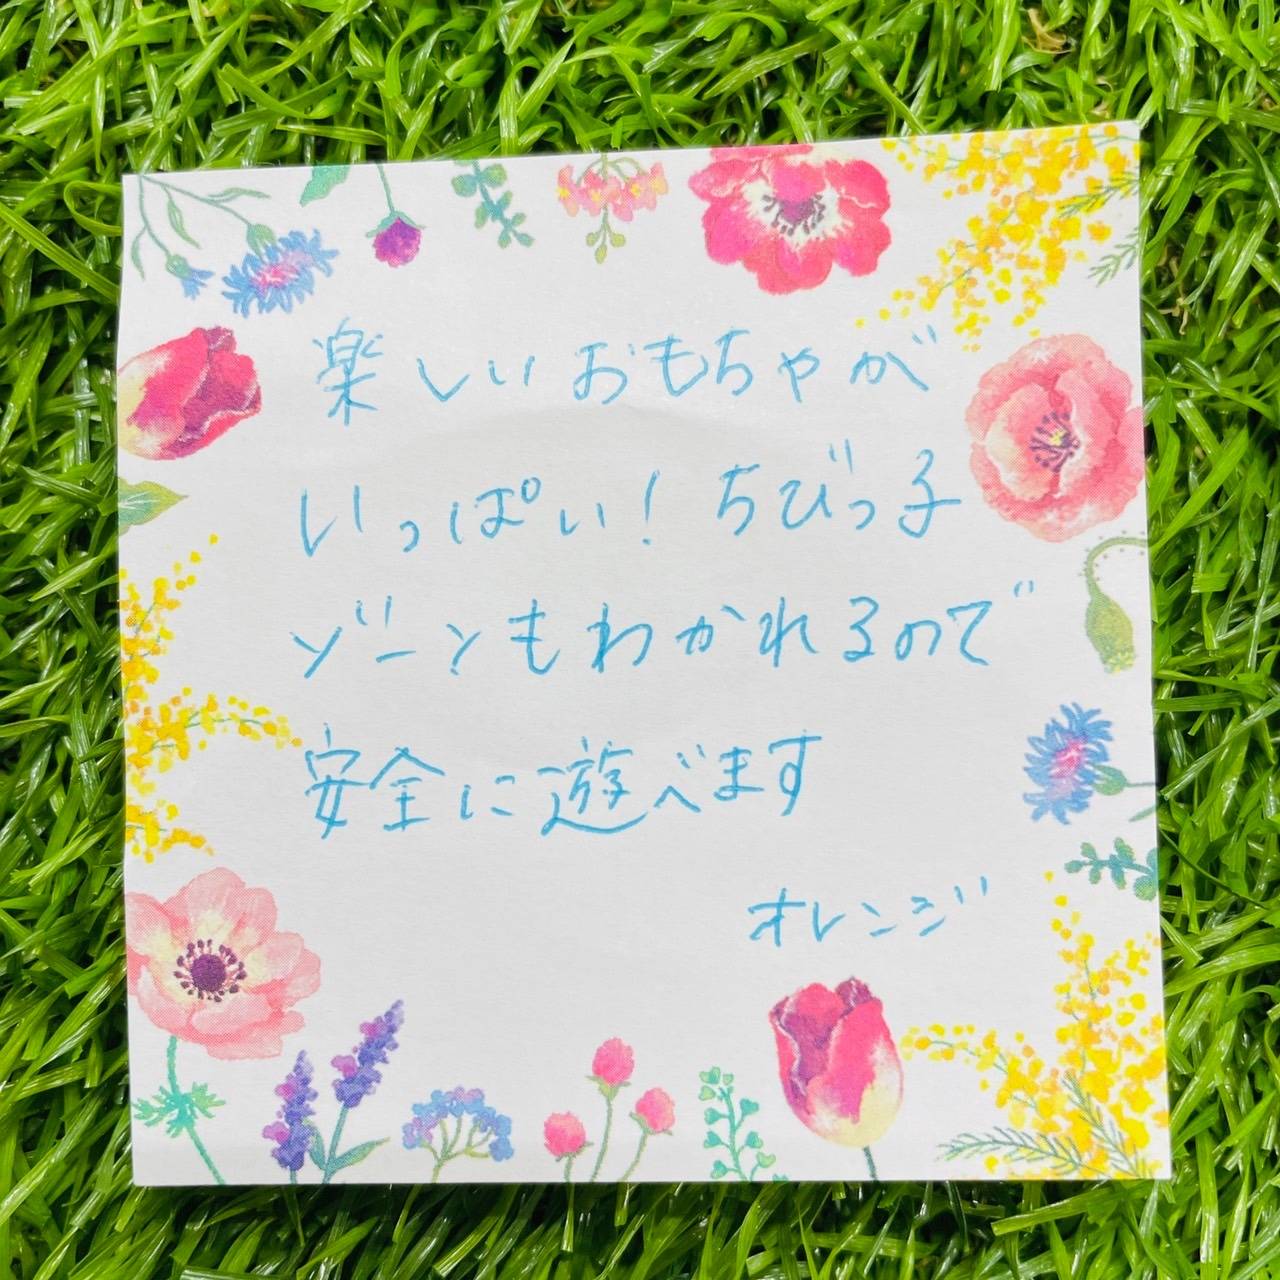 楽しいおもちゃが
いっぱい！ちびっ子
ゾーンもわかれるので
安全に遊べます
オレンジ